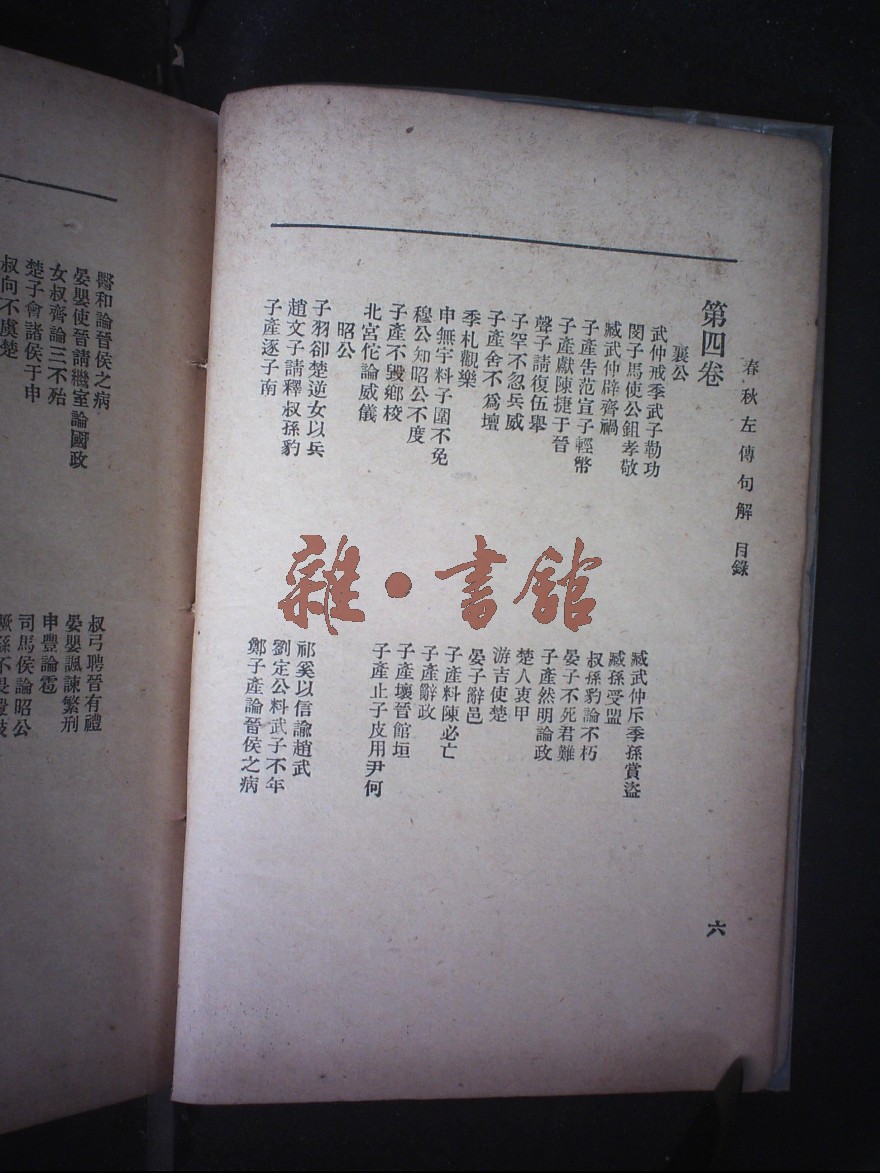 春秋左傳句解 目錄
第四卷
襄公
武仲戒季武子勒功
臧武仲斥季孫賞盜
閔子馬使公鉏孝敬
臧孫受盟
臧武仲辟齊禍
叔孫豹論不朽
子產告范宣子輕幣
晏子不死君難
子產獻陳捷于晉
子產然明論政
聲子請復伍舉
楚人衷甲
子罕不忍兵威
游吉使楚
子產舍不爲壇
晏子辭邑
季札觀樂
子產料陳必亡
申無宇料子圍不免
子產辭政
穆公知昭公不度
子產壞晉館垣
子產不毀鄉校
子產止子皮用尹何
北宮佗論威儀
昭公
子羽卻楚逆女以兵
祁奚以信諭趙武
趙文子請釋叔孫豹
劉定公料武子不年
子產逐子南
鄭子產論晉侯之病
六
醫和論晉侯之病
叔弓聘晉有禮
晏嬰使晉請繼室論國政
晏嬰諷諫繁刑
女叔齊論三不殆
申豐論雹
楚子會諸侯于申
司馬侯論昭公
叔向不虞楚
雜·書館